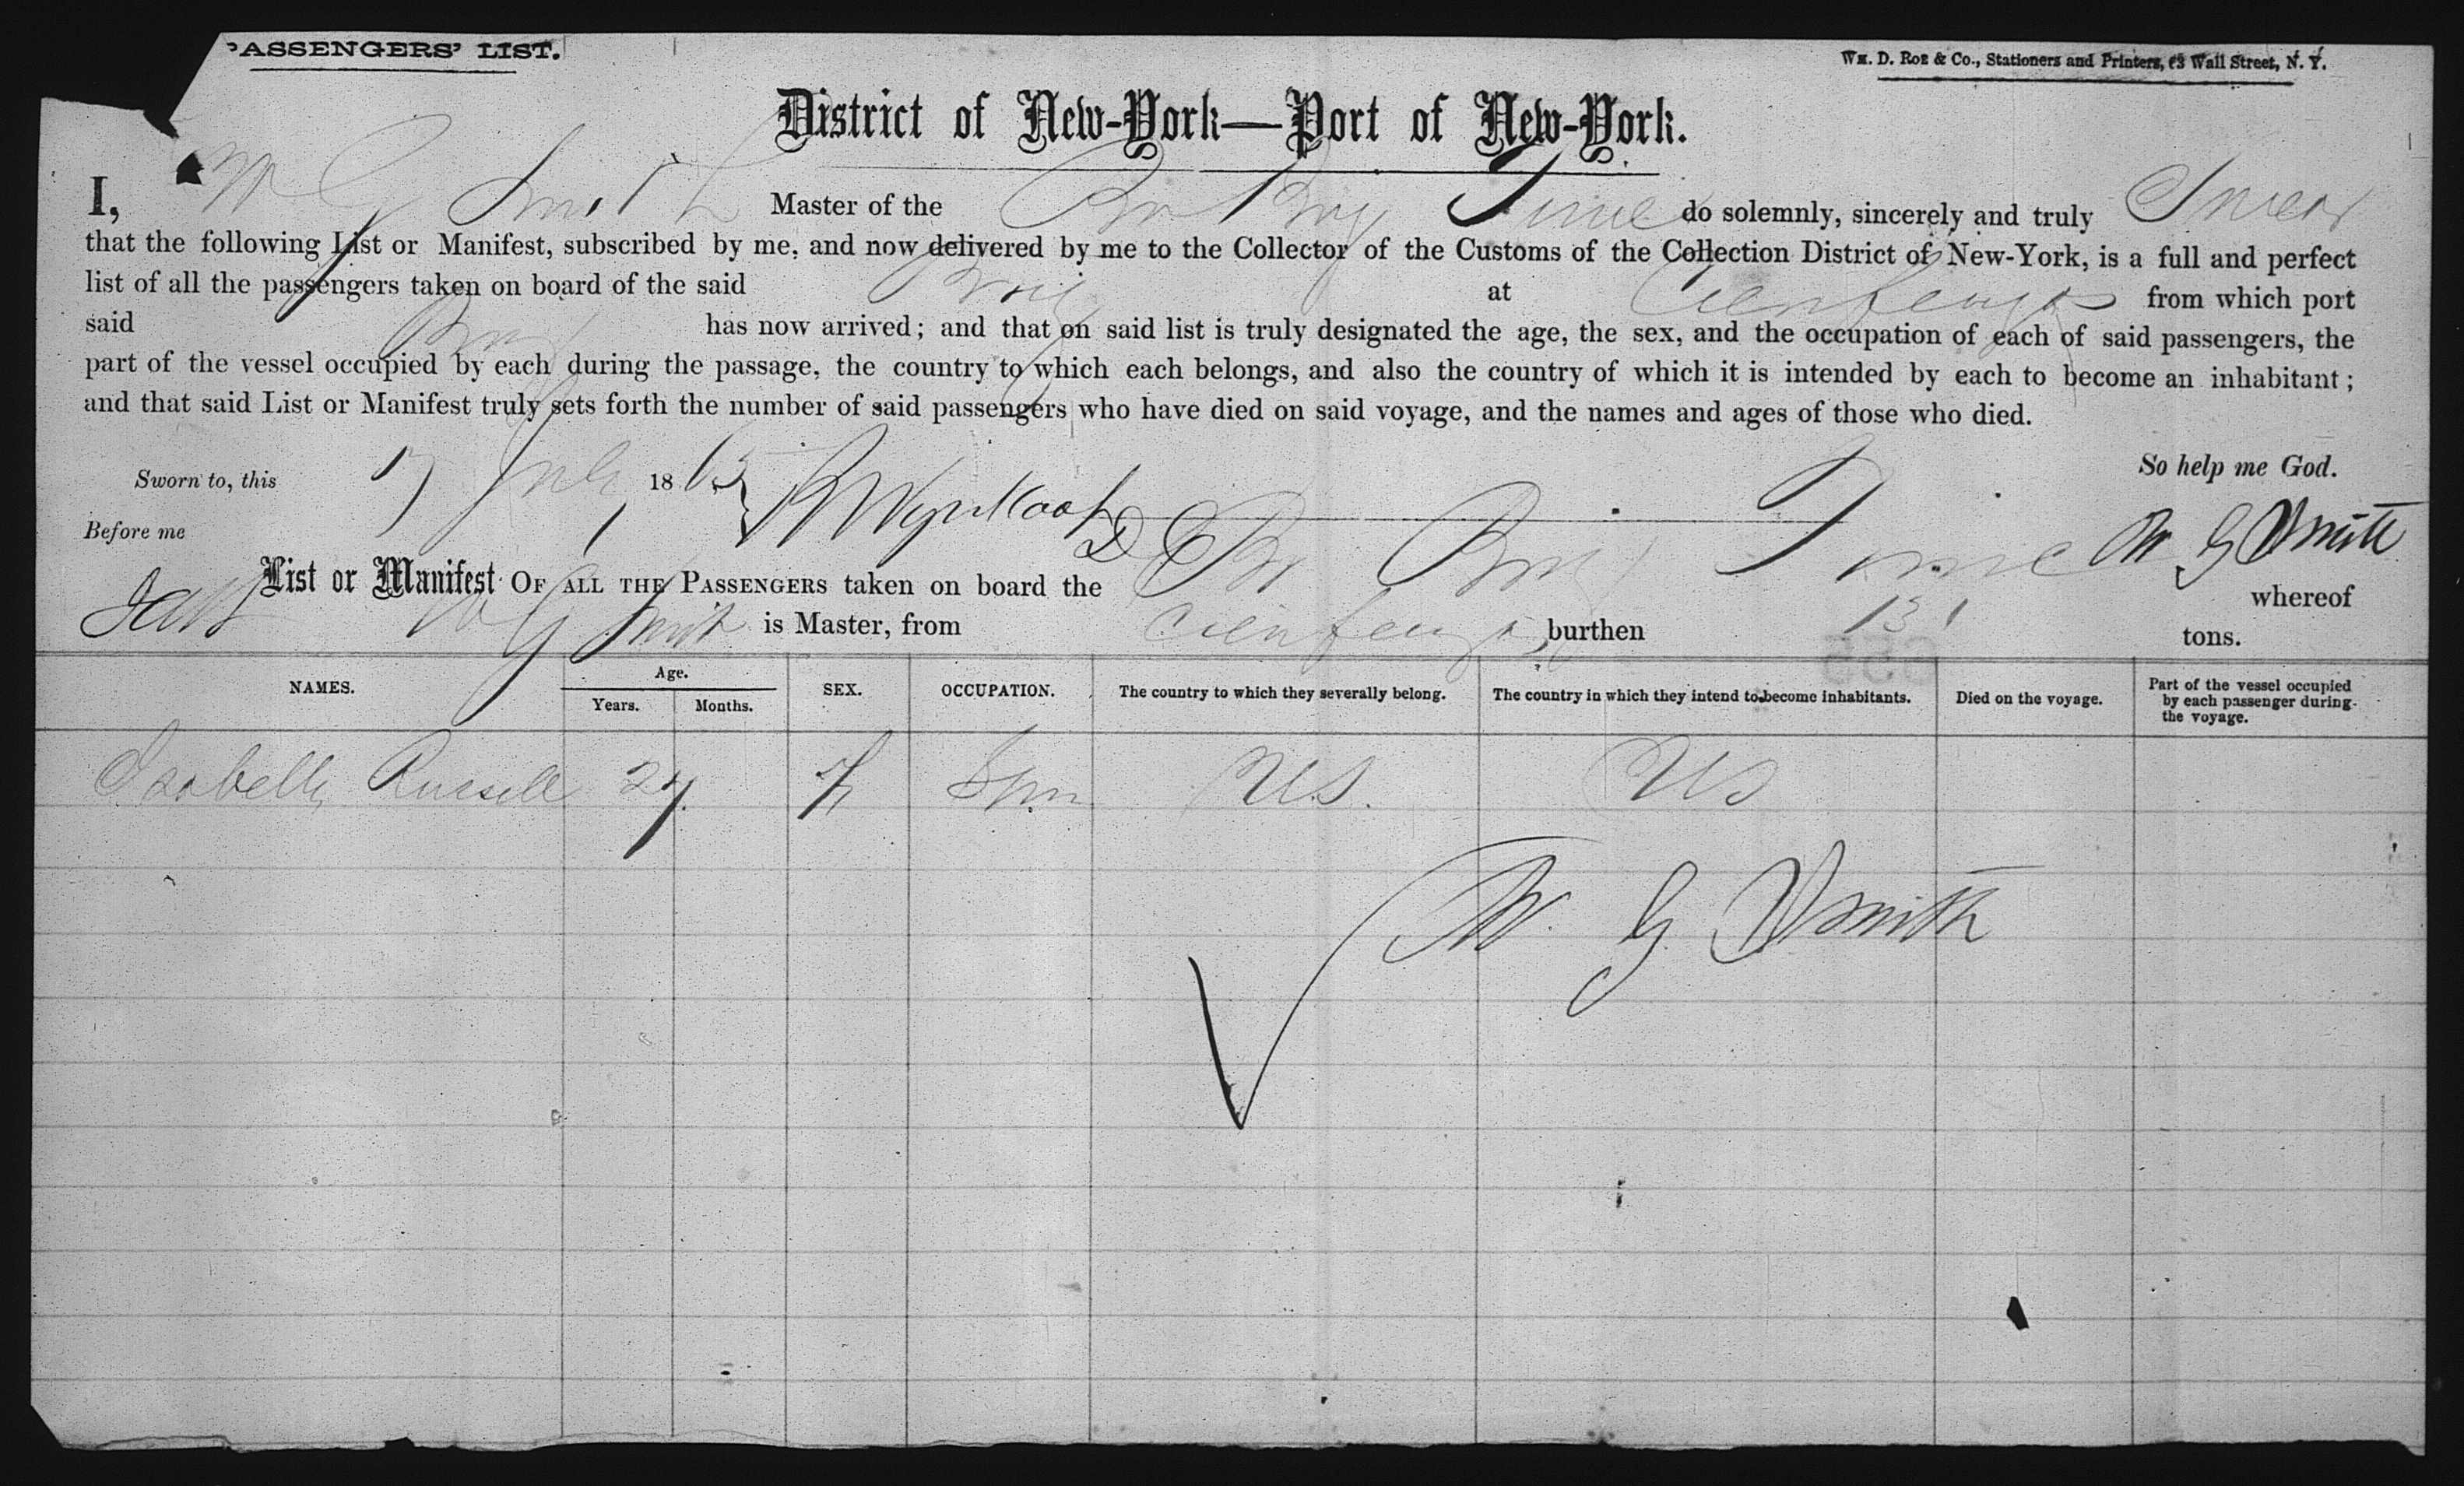 PASSENGERS' LIST.
Wm. D. Roe & Co., Stationers and Printers, 63 Wall Street, N. Y.
District of New-York—Port of New-York.
I, W G Smith Master of the Br Brig do solemnly, sincerely and truly Swear
that the following List or Manifest, subscribed by me, and now delivered by me to the Collector of the Customs of the Collection District of New-York, is a full and perfect
list of all the passengers taken on board of the said Brig at Cienfuegos from which port
said Brig has now arrived; and that on said list is truly designated the age, the sex, and the occupation of each of said passengers, the
part of the vessel occupied by each during the passage, the country to which each belongs, and also the country of which it is intended by each to become an inhabitant;
and that said List or Manifest truly sets forth the number of said passengers who have died on said voyage, and the names and ages of those who died.
So help me God.
Sworn to, this 17 July 1865
Before me Wynkoop
W G Smith
List or Manifest OF ALL THE PASSENGERS taken on board the Br Brig whereof
W G Smith is Master, from Cienfuegos burthen 131 tons.
NAMES. Age. Years. Months. SEX. OCCUPATION. The country to which they severally belong. The country in which they intend to become inhabitants. Died on the voyage. Part of the vessel occupied by each passenger during the voyage.
Isabella Russell 27 f Spn US. US
W. G Smith